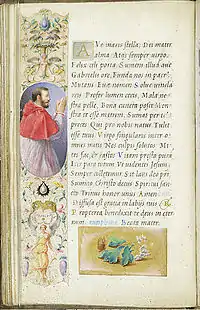 Ave maris stella, Dei mater
alma Atq; semper virgo.
Felix celi porta. Sumens illud ave
Gabrielis ore. Funda nos in pace
Mutans Evæ nomen. Solve vincla
reis Profer lumen cecis. Mala
nostra pelle. Bona cuncta posce.
te esse matrem. Sumat per te
preces Qui pro nobis natus Tulit
esse tuus. Virgo singularis inter
omnes mitis Nos culpis solutos. Mi
tes fac, et castos Vitam presta puram
Iter para tutum Vt videntes Iesum
Semper colletemur. Sit laus deo patri
Summo Christo decus Spiritui
sancto Trinus honor unus. Amen.
Diffusa est gratia in labijs tuis
Propterea benedixit te deus in
eternum.